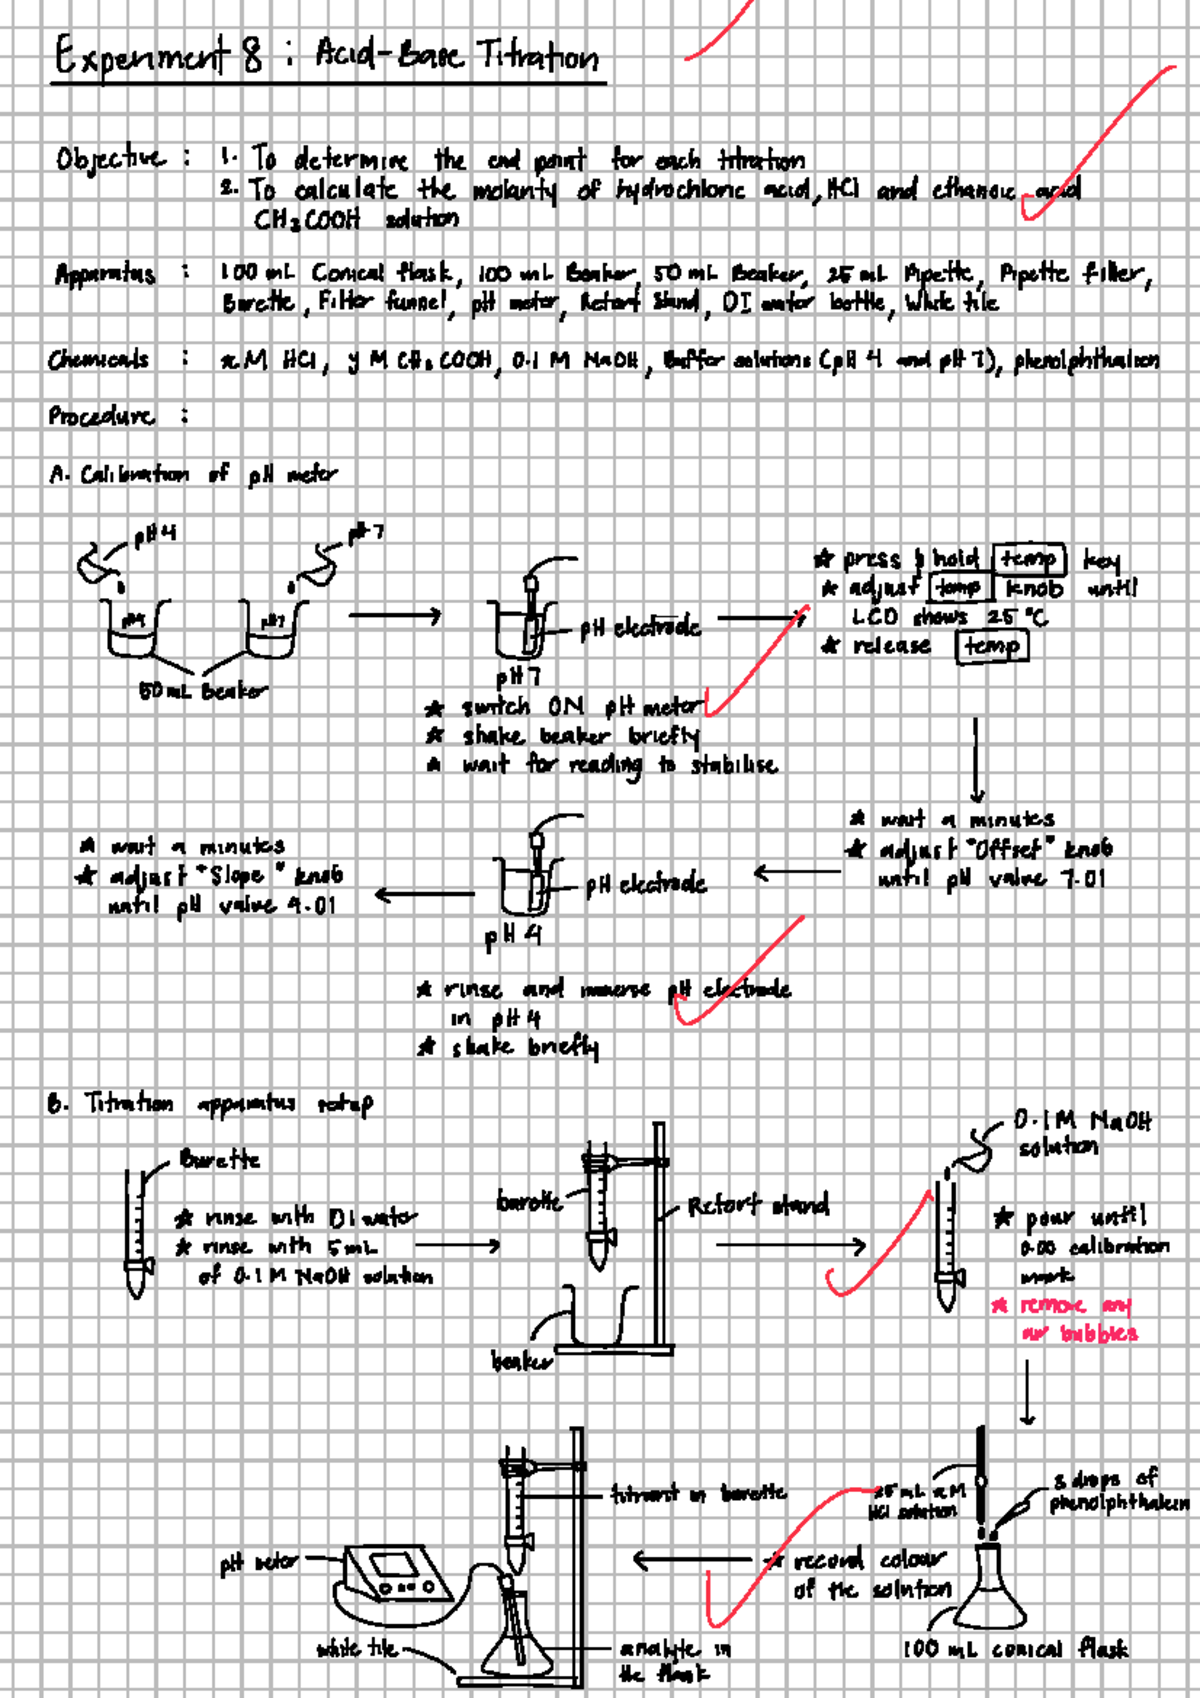 Experiment 8 : Acid-Base Titration
Objective : 1. To determine the end point for each titration
2. To calculate the molarity of hydrochloric acid, HCl and ethanoic acid
CH3COOH solution
Apparatus : 100 mL Conical flask, 100 mL Beaker, 50 mL Beaker, 25 mL Pipette, Pipette filler,
Burette, Filter funnel, pH meter, Retort Stand, DI water bottle, White tile
Chemicals : x M HCl, y M CH3COOH, 0.1 M NaOH, Buffer solutions (pH 4 and pH 7), phenolphthalein
Procedure :
A. Calibration of pH meter
pH 4
pH 7
pH4
pH7
50 mL Beaker
pH electrode
pH 7
★ switch ON pH meter
★ shake beaker briefly
★ wait for reading to stabilise
★ press & hold temp key
★ adjust temp knob until
LCD shows 25 °C
★ release temp
★ wait a minutes
★ adjust "Offset" knob
until pH value 7.01
pH electrode
pH 4
★ rinse and immerse pH electrode
in pH 4
★ shake briefly
★ wait a minutes
★ adjust "Slope" knob
until pH value 4.01
B. Titration apparatus setup
Burette
★ rinse with DI water
★ rinse with 5 mL
of 0.1 M NaOH solution
burette
Retort stand
beaker
0.1 M NaOH
solution
★ pour until
0.00 calibration
mark
★ remove any
air bubbles
25 mL x M
HCl solution
3 drops of
phenolphthalein
100 mL conical flask
★ record colour
of the solution
titrant in burette
pH meter
white tile
analyte in
the flask